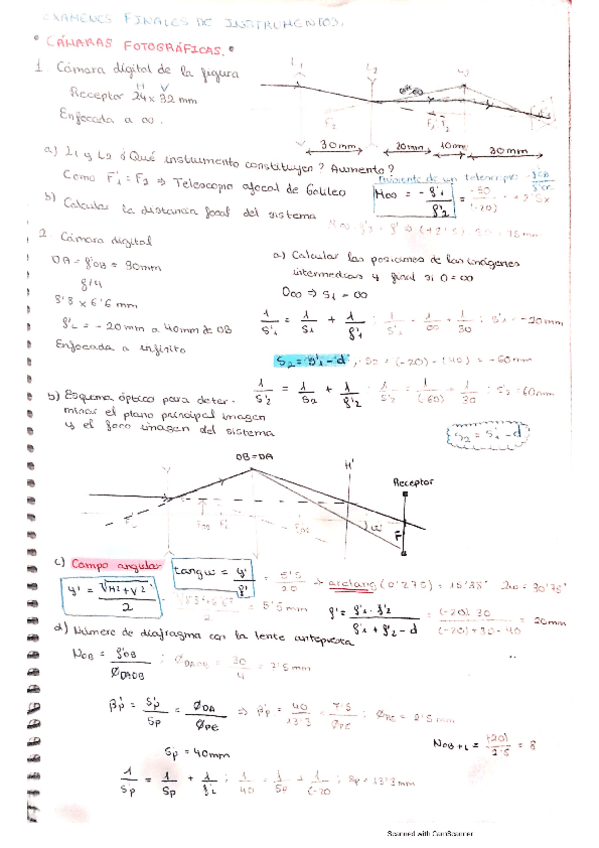 EXAMENES FINALES DE INSTRUMENTOS.
• CÁMARAS FOTOGRÁFICAS. •
1 Cámara digital de la figura
H V
Receptor 24 x 32 mm
Enfocada a ∞.
30mm 20mm 10mm 30mm
a) L1 y L2 ¿ Qué instrumento constituyen ? Aumento ?
Como F'1 = F2 ⇒ Telescopio afocal de Galileo
M∞ = - f'1 / f'2 = -50 / (-20)
b) Calcular la distancia focal del sistema
2. Cámara digital
OA = f'OB = 30mm
f/4
8'8 x 6'6 mm
f'L = - 20mm a 40mm de OB
Enfocada a infinito
a) Calcular las posiciones de las imágenes
intermedias y final si O = ∞
O∞ ⇒ S1 = ∞
1/S'1 = 1/S1 + 1/f'1 ; 1/S'1 = 1/∞ + 1/-20 ; S'1 = -20mm
S2 = S'1 - d , S2 = (-20) - (40) = -60mm
1/S'2 = 1/S2 + 1/f'2 ; 1/S'2 = 1/(-60) + 1/30 ; S'2 = 60mm
S2 = S'1 - d
b) Esquema óptico para deter-
minar el plano principal imagen
y el foco imagen del sistema
OB = DA
H'
Receptor
F'
c) Campo angular
tang w = y'/f' = 5'5/20 → arctang (0'275) = 15'38° 2w = 30'75°
y' = √H²+V² / 2 = 5'5mm
f' = f'1 · f'2 / f'1 + f'2 - d = (-20) 30 / (-20) + 30 - 40 = 20mm
d) Número de diafragma con la lente antepuesta
NOB = f'OB / ØDAOB ; ØDAOB = 30/4 = 7'5mm
β'p = S'p/Sp = ØDA/ØPE ⇒ β'p = 40/13'3 = 7'5/ØPE ; ØPE = 2'5mm
NOB+L = (20)/2'5 = 8
S'p = 40mm
1/S'p = 1/Sp + 1/f'2 ; 1/40 = 1/Sp + 1/(-20) ; Sp = 13'3mm
Scanned with CamScanner